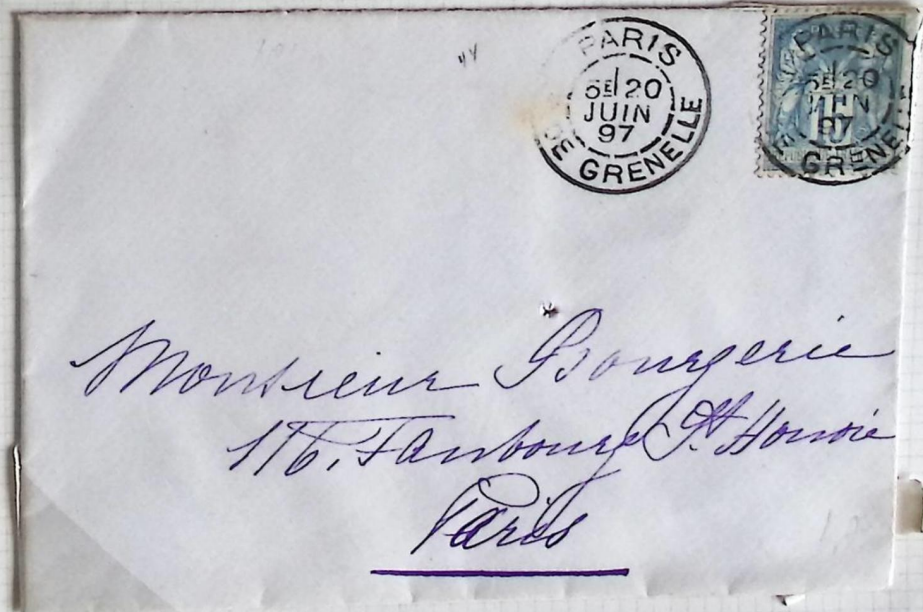 PARIS
5E 20
JUIN
97
DE GRENELLE
PARIS
5E 20
JUIN
97
GRENELLE
15
Monsieur Bourgerie
116, Faubourg St Honoré
Paris